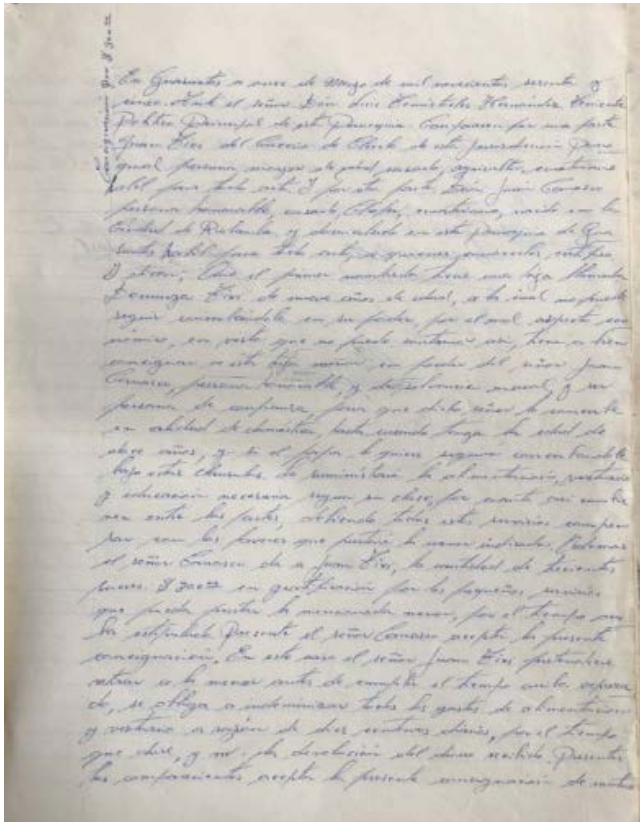 consignación por S/ 300.00
En Guasuntos a once de Marzo de mil novecientos sesenta y
cinco. Ante el señor Don Luis Temistocles Hernández, Teniente
Político Principal de esta Parroquia. Comparecen por una parte
Juan Tixi del Caserio de de esta jurisdicción Parro
quial persona mayor de edad, casado, agricultor, ecuatoriano
habil para todo acto. Y por otra parte, Don Juan Carrasco
persona honorable, casado, Chofer, ecuatoriano, nacido en la
Ciudad de Riobamba y domiciliado en esta parroquia de Gua
suntos habil para todo acto, a quienes conocerles, certifico
Y dicen; Que el primer nombrado tiene una hija llamada
Dominga Tixi, de nueve años de edad, a la cual no puede
seguir conservandole en su poder, por el mal aspecto eco
nómico, en vista que no puede mantener asi, tiene a bien
consignar a esta hija menor en poder del señor Juan
Carrasco, persona honorable, y de solvencia moral, y ser
persona de confianza, para que dicho señor le conserve
en calidad de domestica, hasta cuando tenga la edad de
doce años, y si el papa le quiere seguir conservandole
bajo estas clausulas de suministrarle la alimentación, vestuario
y educación necesaria segun su clase, por cuanto asi convie
nen entre las partes, debiendo todos estos servicios compen
sar con los favores que prestará la menor indicada. Ademas
el señor Carrasco da a Juan Tixi, la cantidad de trecientos
sucres. S/ 300.00 en gratificación por los pequeños servicios
que pueda prestar la mencionada menor, por el tiempo
estipulado Presente el señor Carrasco acepta la presente
consignación. En este caso el señor Juan Tixi pretendiere
retirar a la menor antes de cumplir el tiempo arriba expresa
do, se obliga a indemnizar todos los gastos de alimentación
y vestuario a razón de dos sucres diarios, por el tiempo
que dure, y la devolución del dinero recibido. Presentes
los comparecientes aceptan la presente consignación de mutuo